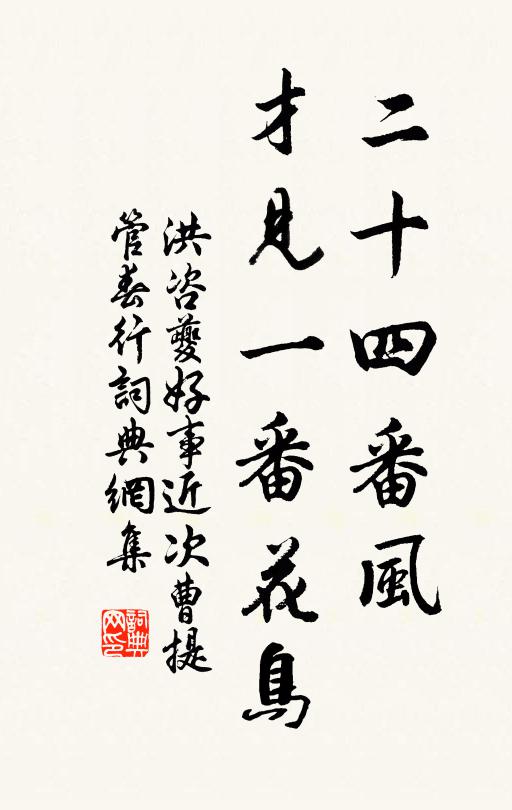 二十四番風
才見一番花鳥
洪咨夔好事近次曹提
管春行詞典網集
詞典
网印